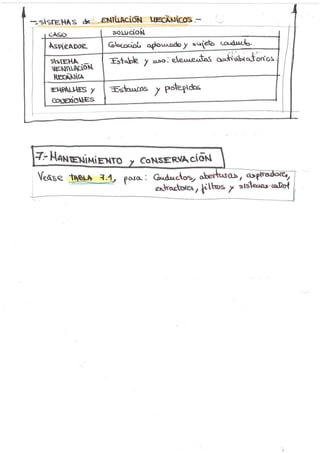 -. SISTEMAS de VENTILACIÓN MECÁNICOS.-
CASO SOLUCIÓN
ASPIRADOR aplomado y sujeto conducto.
SISTEMA VENTILACIÓN MECÁNICA Estable y uso: elementos antivibratorios.
EMPALMES y CONEXIONES Estancos y protegidos
7.- MANTENIMIENTO y CONSERVACIÓN
Véase TABLA 7.1, para: Conductos, aberturas, aspiradores,
extractores, filtros y sistemas control